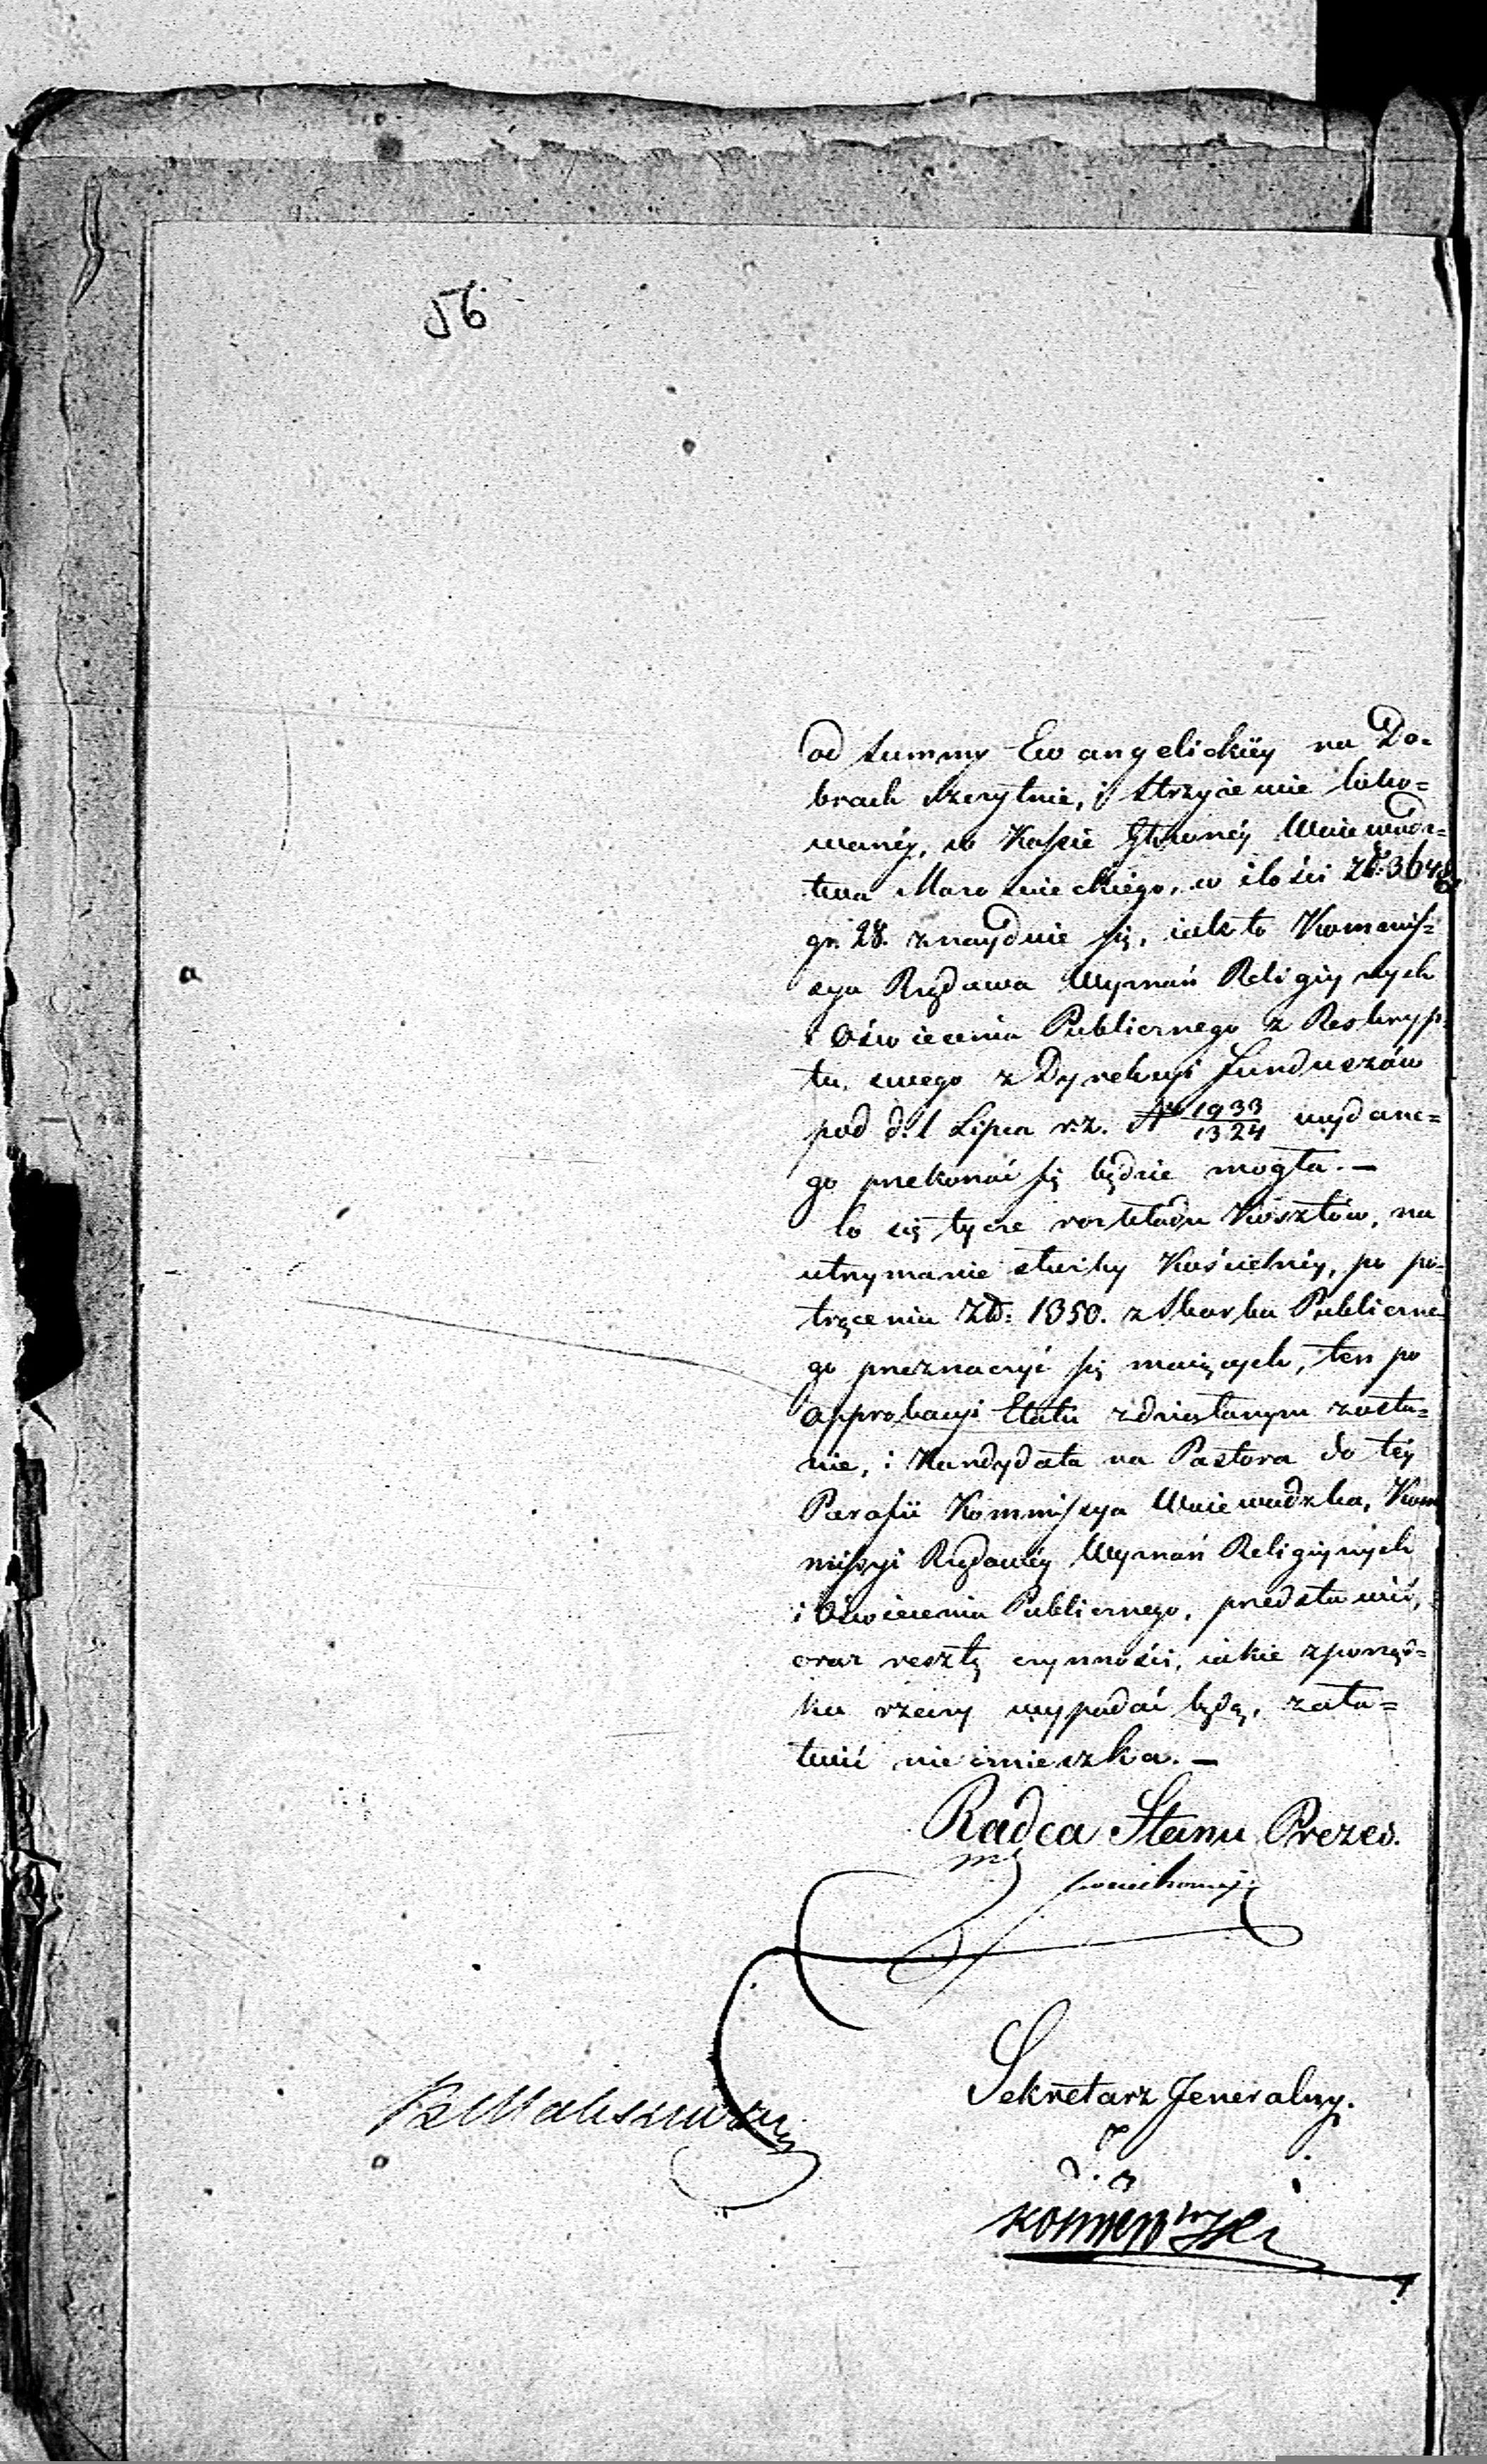 56
od summy Ewangelickiey na Do=
brach Szczytnie, i Strzyżewie loko=
waney, w Kassie Główney Wojewódz=
twa Mazowieckiego, w ilości Zł: 3648
gr. 28. znayduie się, iak to Kommis=
sya Rządowa Wyznań Religiynych
i Oświecenia Publicznego z Reskryp=
tu swego z Dyrekcyi Funduszów
pod d. 1 Lipca r.z. N 1933/1324 wydane=
go przekonać się będzie mogła. —
Co się tycze rozkładu Kosztów, na
utrzymanie służby Kościelney, po po=
trąceniu Zł: 1350. z Skarbu Publiczne
go przeznaczyć się maiących, ten po
approbacyi Etatu zdziałanym zosta=
nie, i Kandydata na Pastora do tey
Parafii Kommissya Woiewódzka, Kom
missyi Rządowey Wyznań Religiynych
i Oświecenia Publicznego, przedstawić,
oraz resztę czynności, iakie z porząd=
ku rzeczy wypadać będą, zała=
twić nieomieszka. —
Radca Stanu Prezes.
Sekretarz Jeneralny.